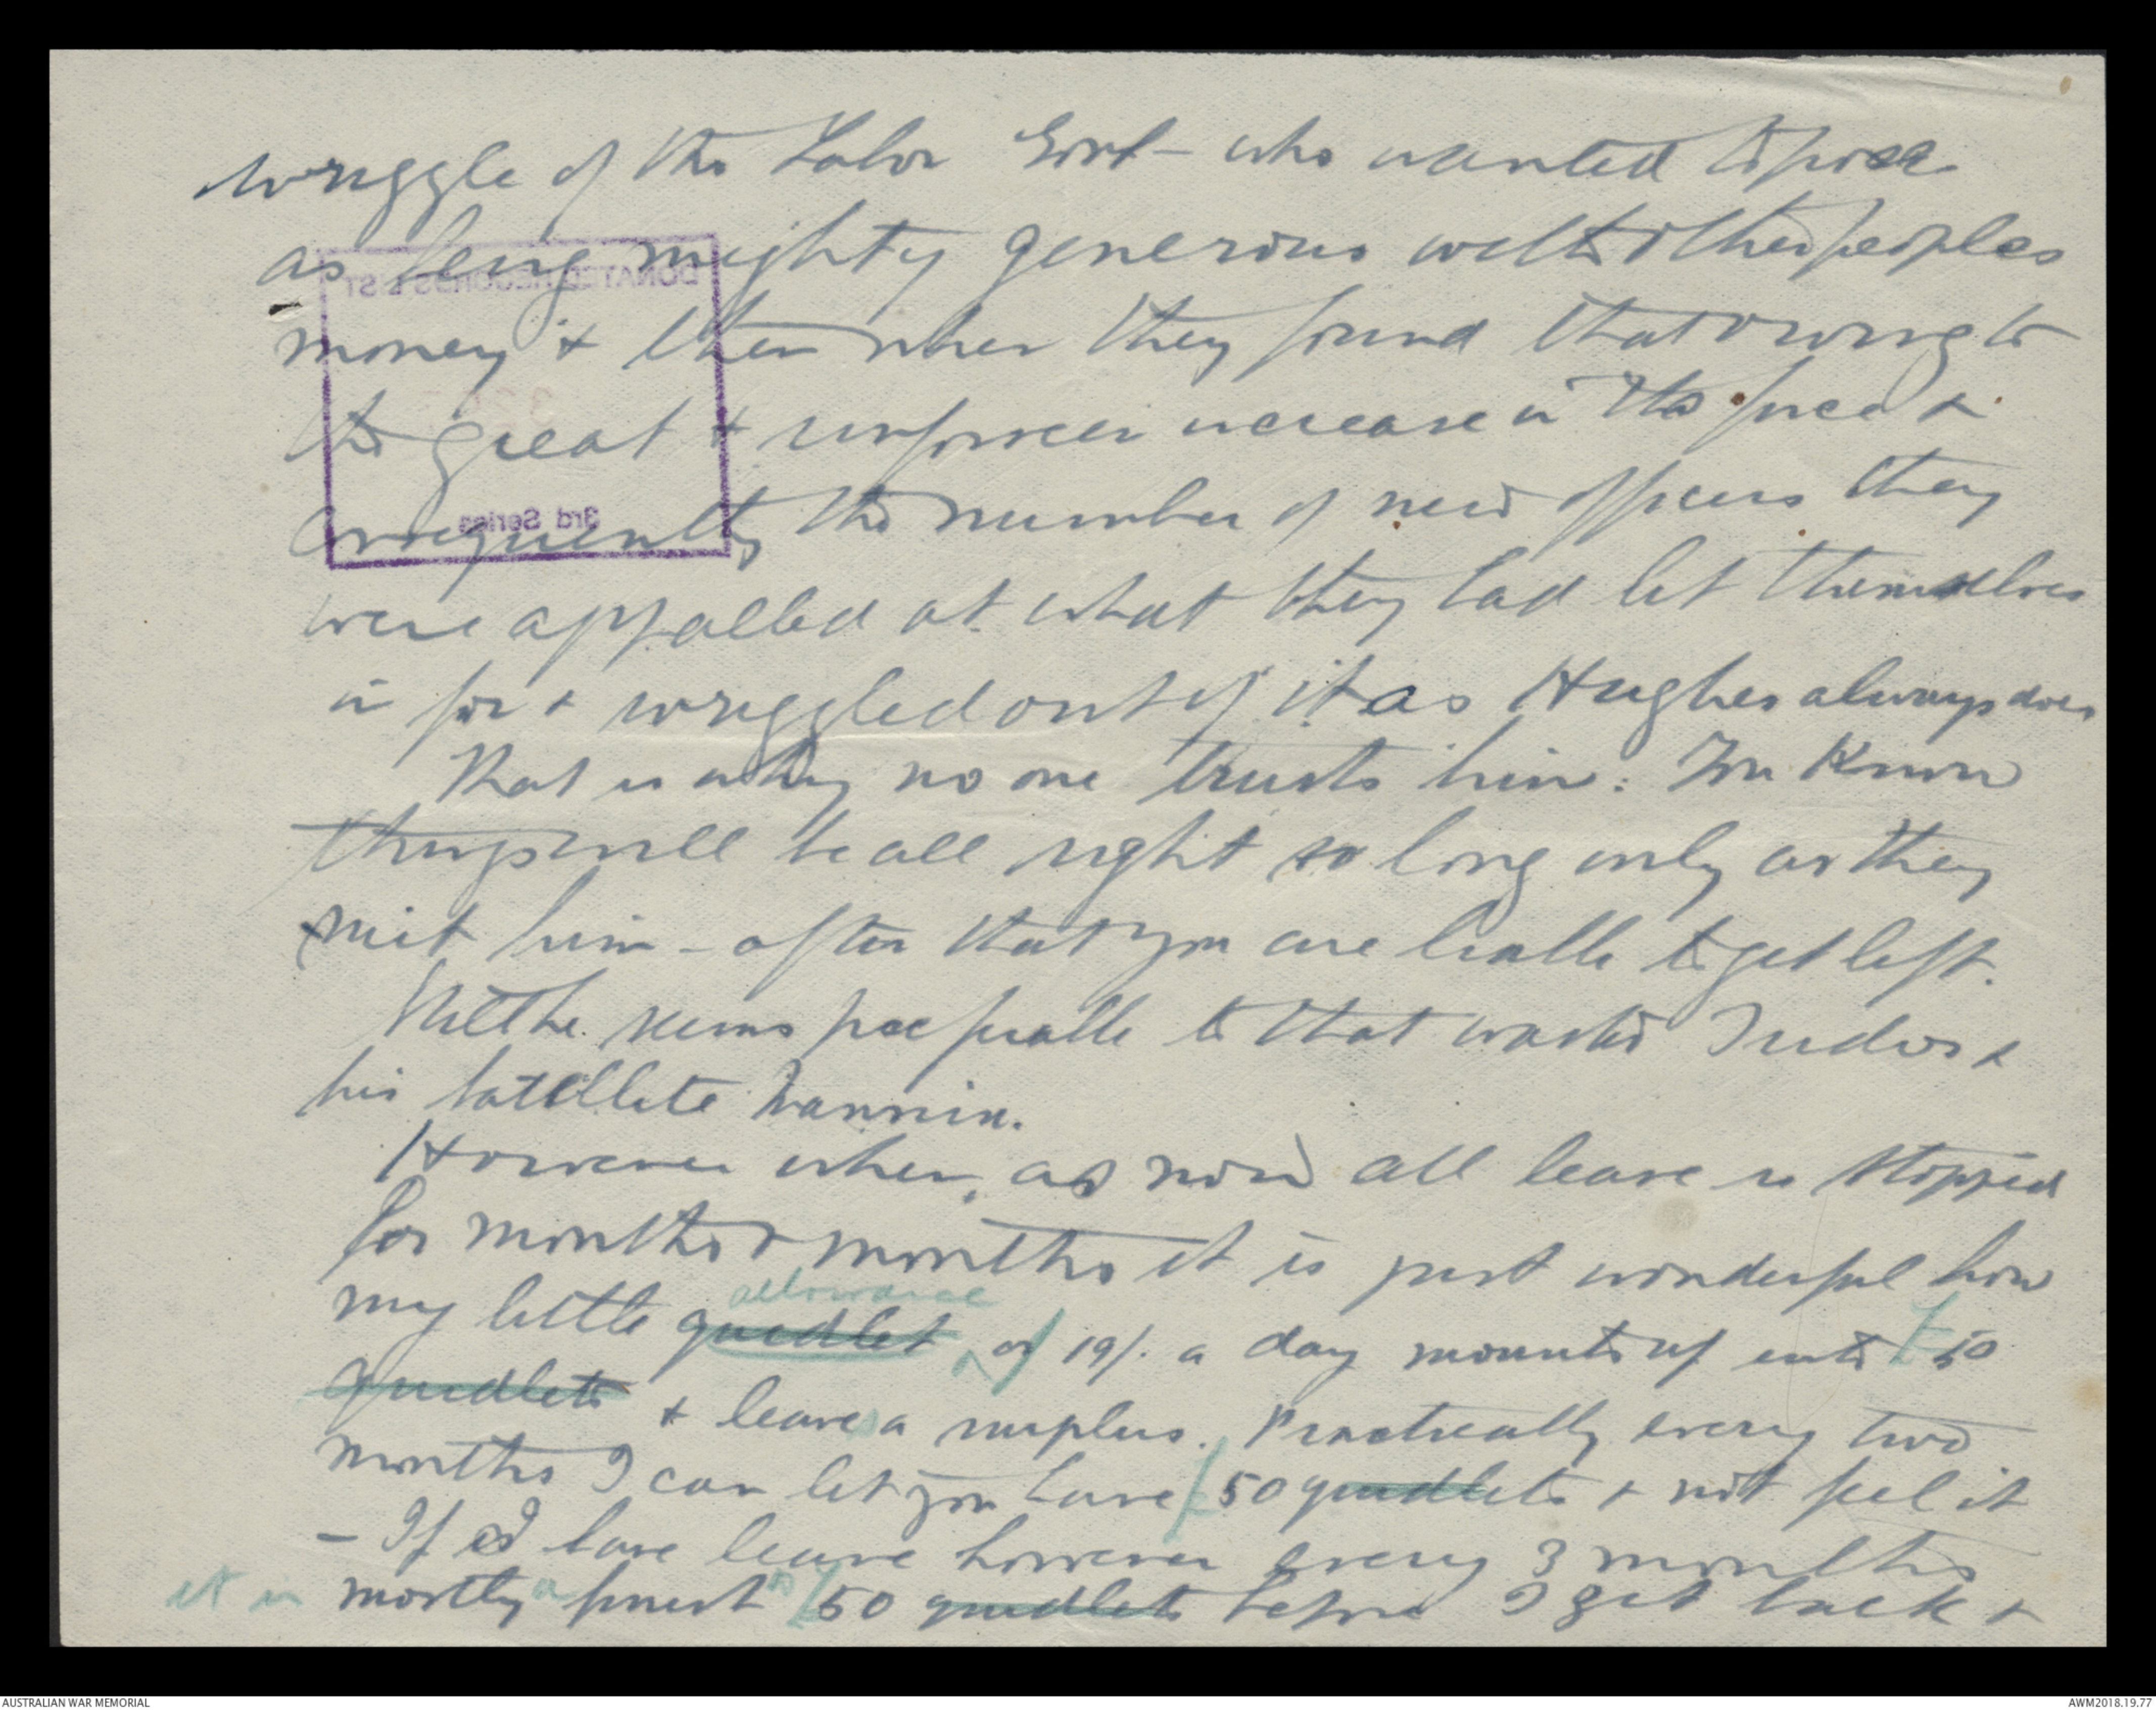 wriggle of the Labor Govt - who wanted to pose
as being mighty generous with other peoples
money & then when they found that owing to
the great & unforseen increase in the force &
consequently the number of new officers they
were appalled at what they had let themselves
in for & wriggled out of it as Hughes always does
That is why no one trusts him: You know
things will be all right so long only as they
suit him - after that you are liable to get left.
Still he seems preferable to that waster Tudor &
his satellite Mannix.
However when, as now all leave is stopped
for months & months it is just wonderful how
allowance
my little quidlet of 19/. a day mounts up into £ 50
quidlets & leaves a surplus. Practically every two
months I can let you have £50 quidlets & not feel it
- If I have leave however every 3 months
it is mostly a 50 quidlets before I get back &
DONATED RECORDS LIST
3rd Series
AUSTRALIAN WAR MEMORIAL
AWM2018.19.77